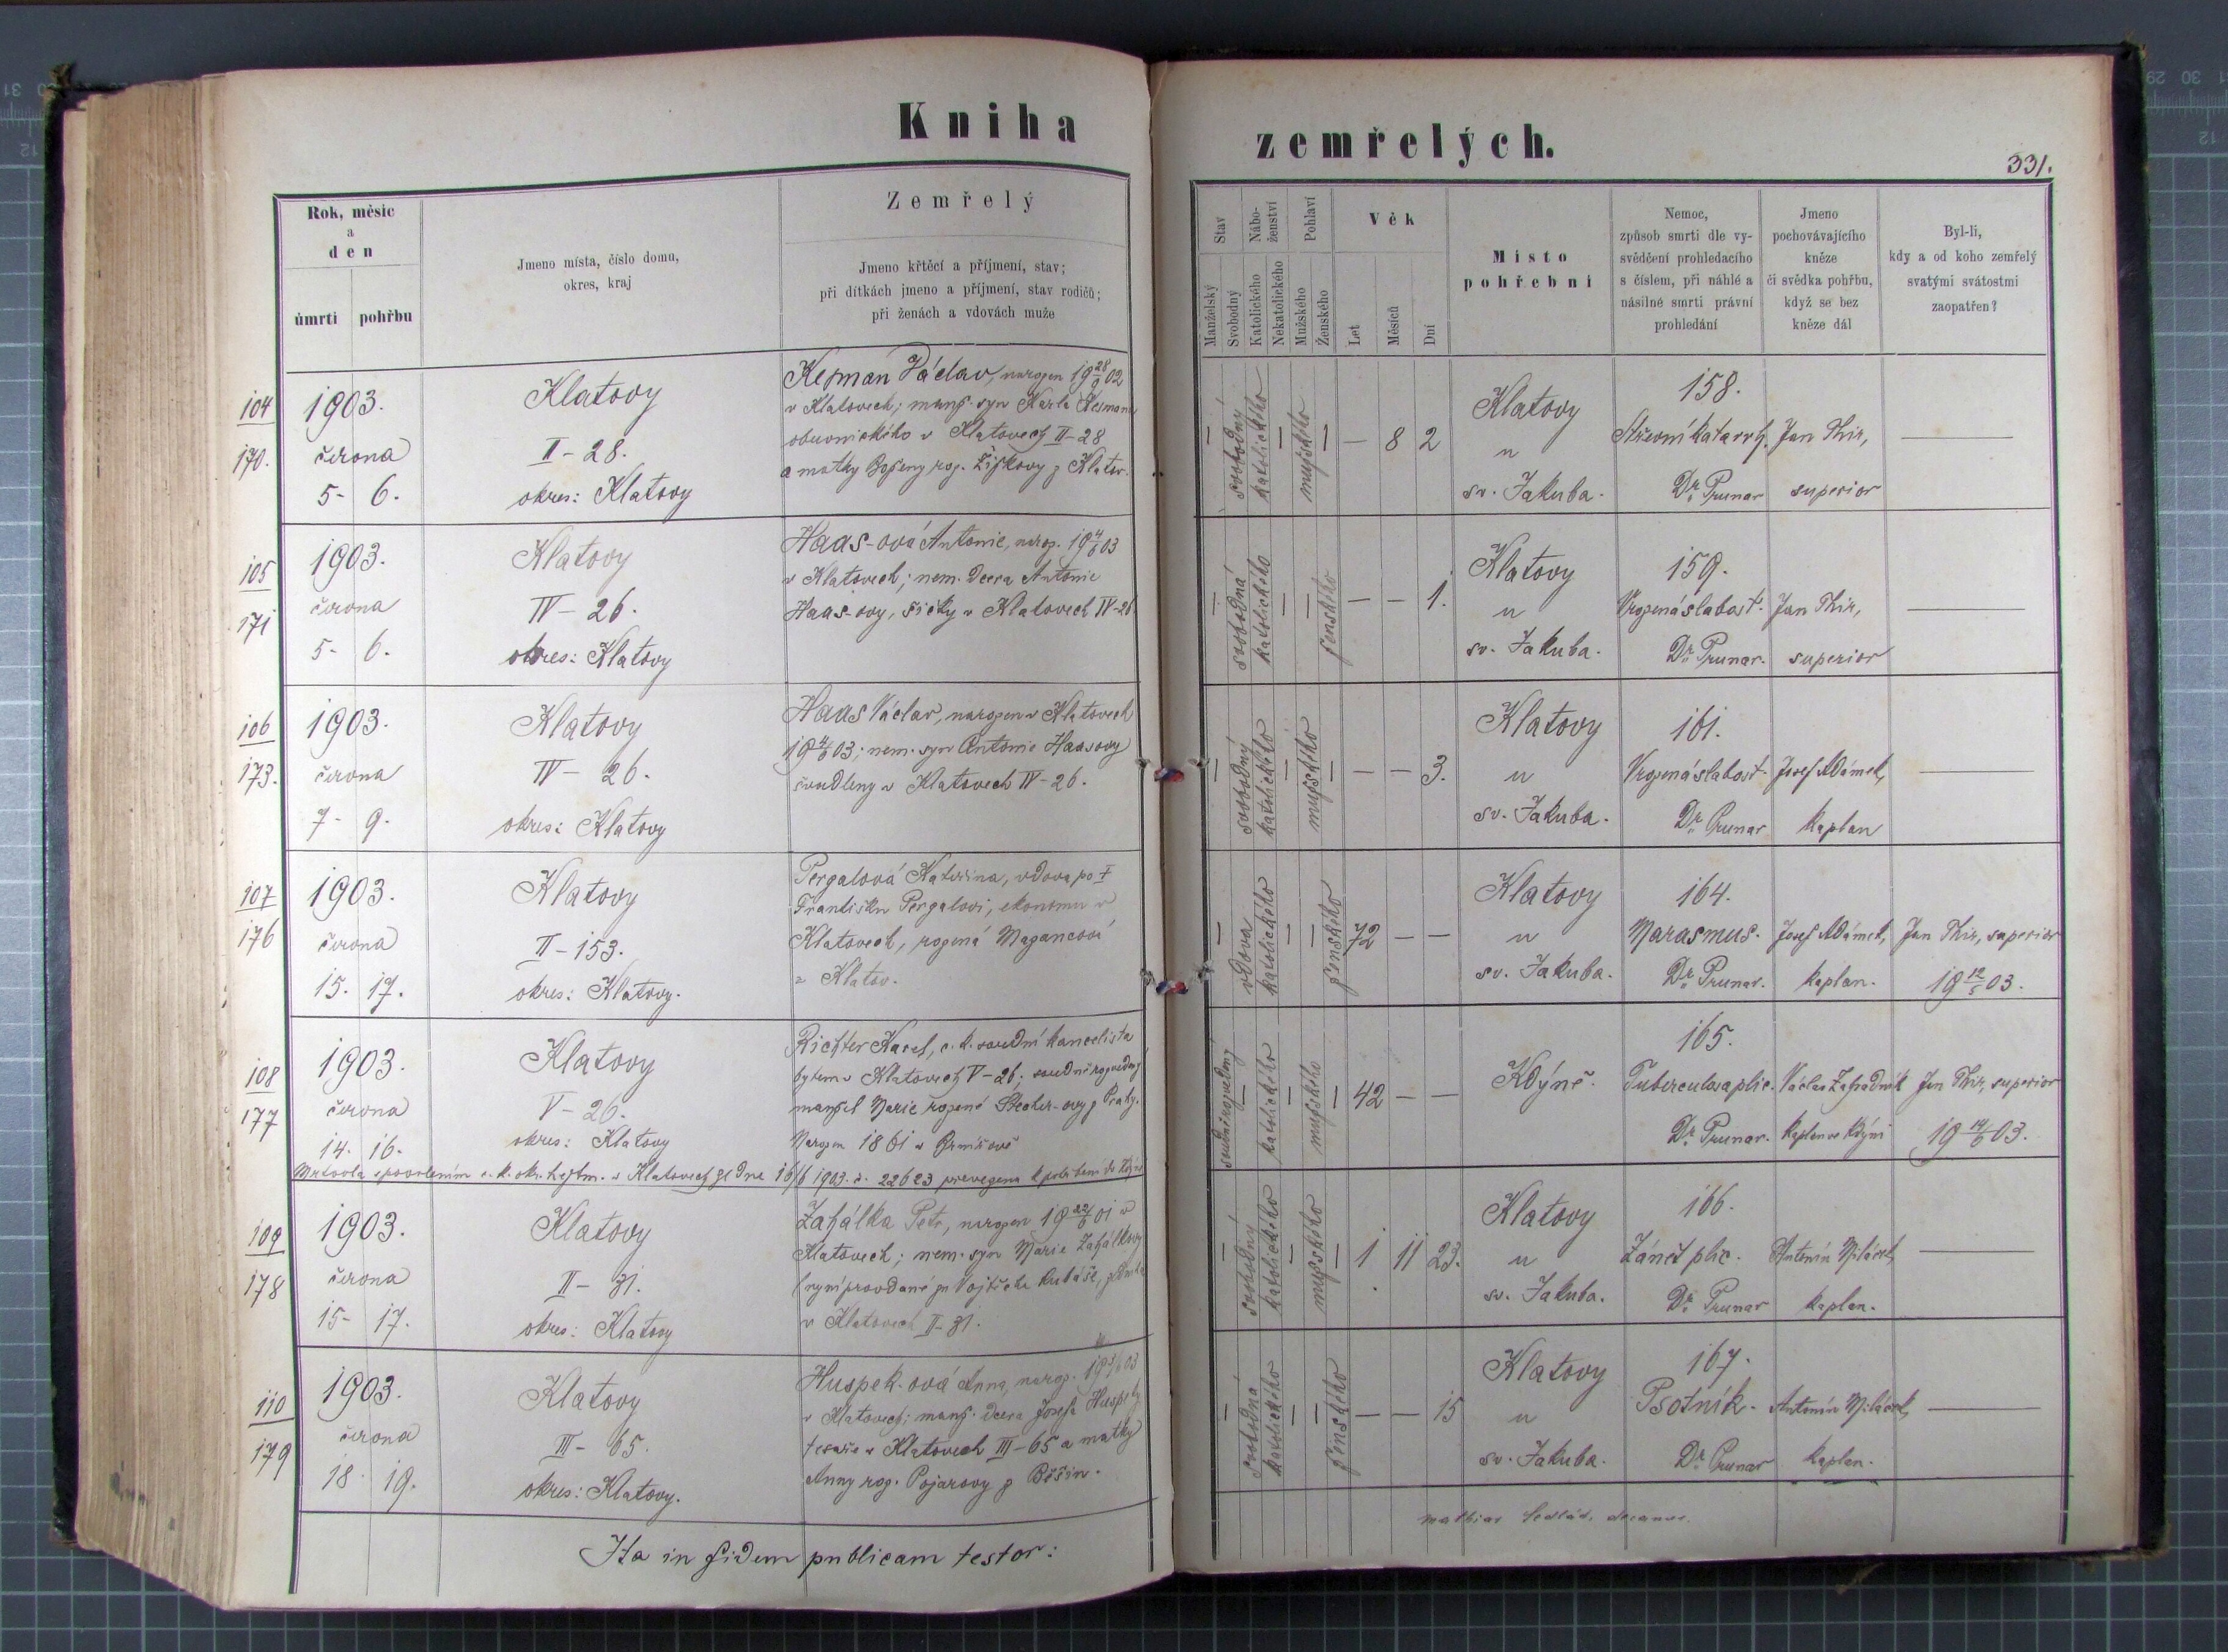 Kniha zemřelých.
331.
Rok, měsíc
a
den
úmrtí pohřbu
Jmeno místa, číslo domu,
okres, kraj
Zemřelý
Jmeno křtěcí a příjmení, stav;
při dítkách jmeno a příjmení, stav rodičů;
při ženách a vdovách muže
Stav
Nábo-
ženství
Pohlaví
Věk
Manželský
Svobodný
Katolického
Nekatolického
Mužského
Ženského
Let
Měsíců
Dní
Místo
pohřební
Nemoc,
způsob smrti dle vy-
svědčení prohledacího
s číslem, při náhlé a
násilné smrti právní
prohledání
Jmeno
pochovávajícího
kněze
či svědka pohřbu,
když se bez
kněze dál
Byl-li,
kdy a od koho zemřelý
svatými svátostmi
zaopatřen?
104
170.
1903.
června
5- 6.
Klatovy
II-28.
okres: Klatovy
Václav, narozen 19 28/9 02
v Klatovech; manž. syn Karla
obuvnického v Klatovech II-28
a matky Boženy roz. Žižkovy z Klatov.
svobodný
katolického
mužského
— 8 2
Klatovy
u
sv. Jakuba.
158.
Střevní katarrh.
Dr. Prunar
Jan Thir,
superior
105
171
1903.
června
5- 6.
Klatovy
IV-26.
okres: Klatovy
Haas-ová Antonie, naroz. 19 4/6 03
v Klatovech; nem. dcera Antonie
Haas-ovy, šičky v Klatovech IV-26
svobodná
katolického
ženského
— — 1.
Klatovy
u
sv. Jakuba.
159.
Vrozená slabost.
Dr. Prunar.
Jan Thir,
superior
106
173.
1903.
června
7- 9.
Klatovy
IV- 26.
okres: Klatovy
Haas Václav, narozen v Klatovech
19 4/6 03; nem. syn Antonie Haasovy
švadleny v Klatovech IV-26.
svobodný
katolického
mužského
— — 3.
Klatovy
u
sv. Jakuba.
161.
Vrozená slabost.
Dr. Prunar
Josef Adámek,
kaplan
107
176
1903.
června
15. 17.
Klatovy
II-153.
okres: Klatovy.
Pergalová Kateřina, vdova po †
Františku Pergalovi, ekonomu v
Klatovech, rozená
z Klatov.
vdova
katolického
ženského
72 — —
Klatovy
u
sv. Jakuba.
164.
Marasmus.
Dr. Prunar.
Josef Adámek,
kaplan.
Jan Thir, superior
19 12/5 03.
108
177
1903.
června
14. 16.
Klatovy
V-26.
okres: Klatovy
Richter Karel, c. k. soudní kancelista
bytem v Klatovech V-26; soudně rozvedený
manžel Marie rozené z Prahy.
Narozen 1861 v
Mrtvola s povolením c. k. okr. hejtm. v Klatovech ze dne 16/6 1903. č. 22623 převezena k pohřbení do Kdýně
soudně rozvedený
katolického
mužského
42 — —
Kdýně.
165.
Tuberculosa plic.
Dr. Prunar.
Václav Zahradník
kaplan ve Kdýni
Jan Thir, superior
19 14/6 03.
109
178
1903.
června
15- 17.
Klatovy
II- 31.
okres: Klatovy
Zahálka Petr, narozen 19 22/6 01 v
Klatovech; nem. syn Marie Zahálkovy
(nyní provdané za Vojtěcha
v Klatovech II-31.
svobodný
katolického
mužského
1 11 23.
Klatovy
u
sv. Jakuba.
166.
Zánět plic.
Dr. Prunar
Antonín
kaplan.
110
179
1903.
června
18. 19.
Klatovy
III- 65.
okres: Klatovy.
Huspek-ová Anna, naroz.
v Klatovech; manž. dcera Josefa
tesaře v Klatovech III-65 a matky
Anny roz. Pojarovy z Běšin.
svobodná
katolického
ženského
— — 15
Klatovy
u
sv. Jakuba.
167.
Psotník.
Dr. Prunar
Antonín
kaplan.
Ita in fidem publicam testor: